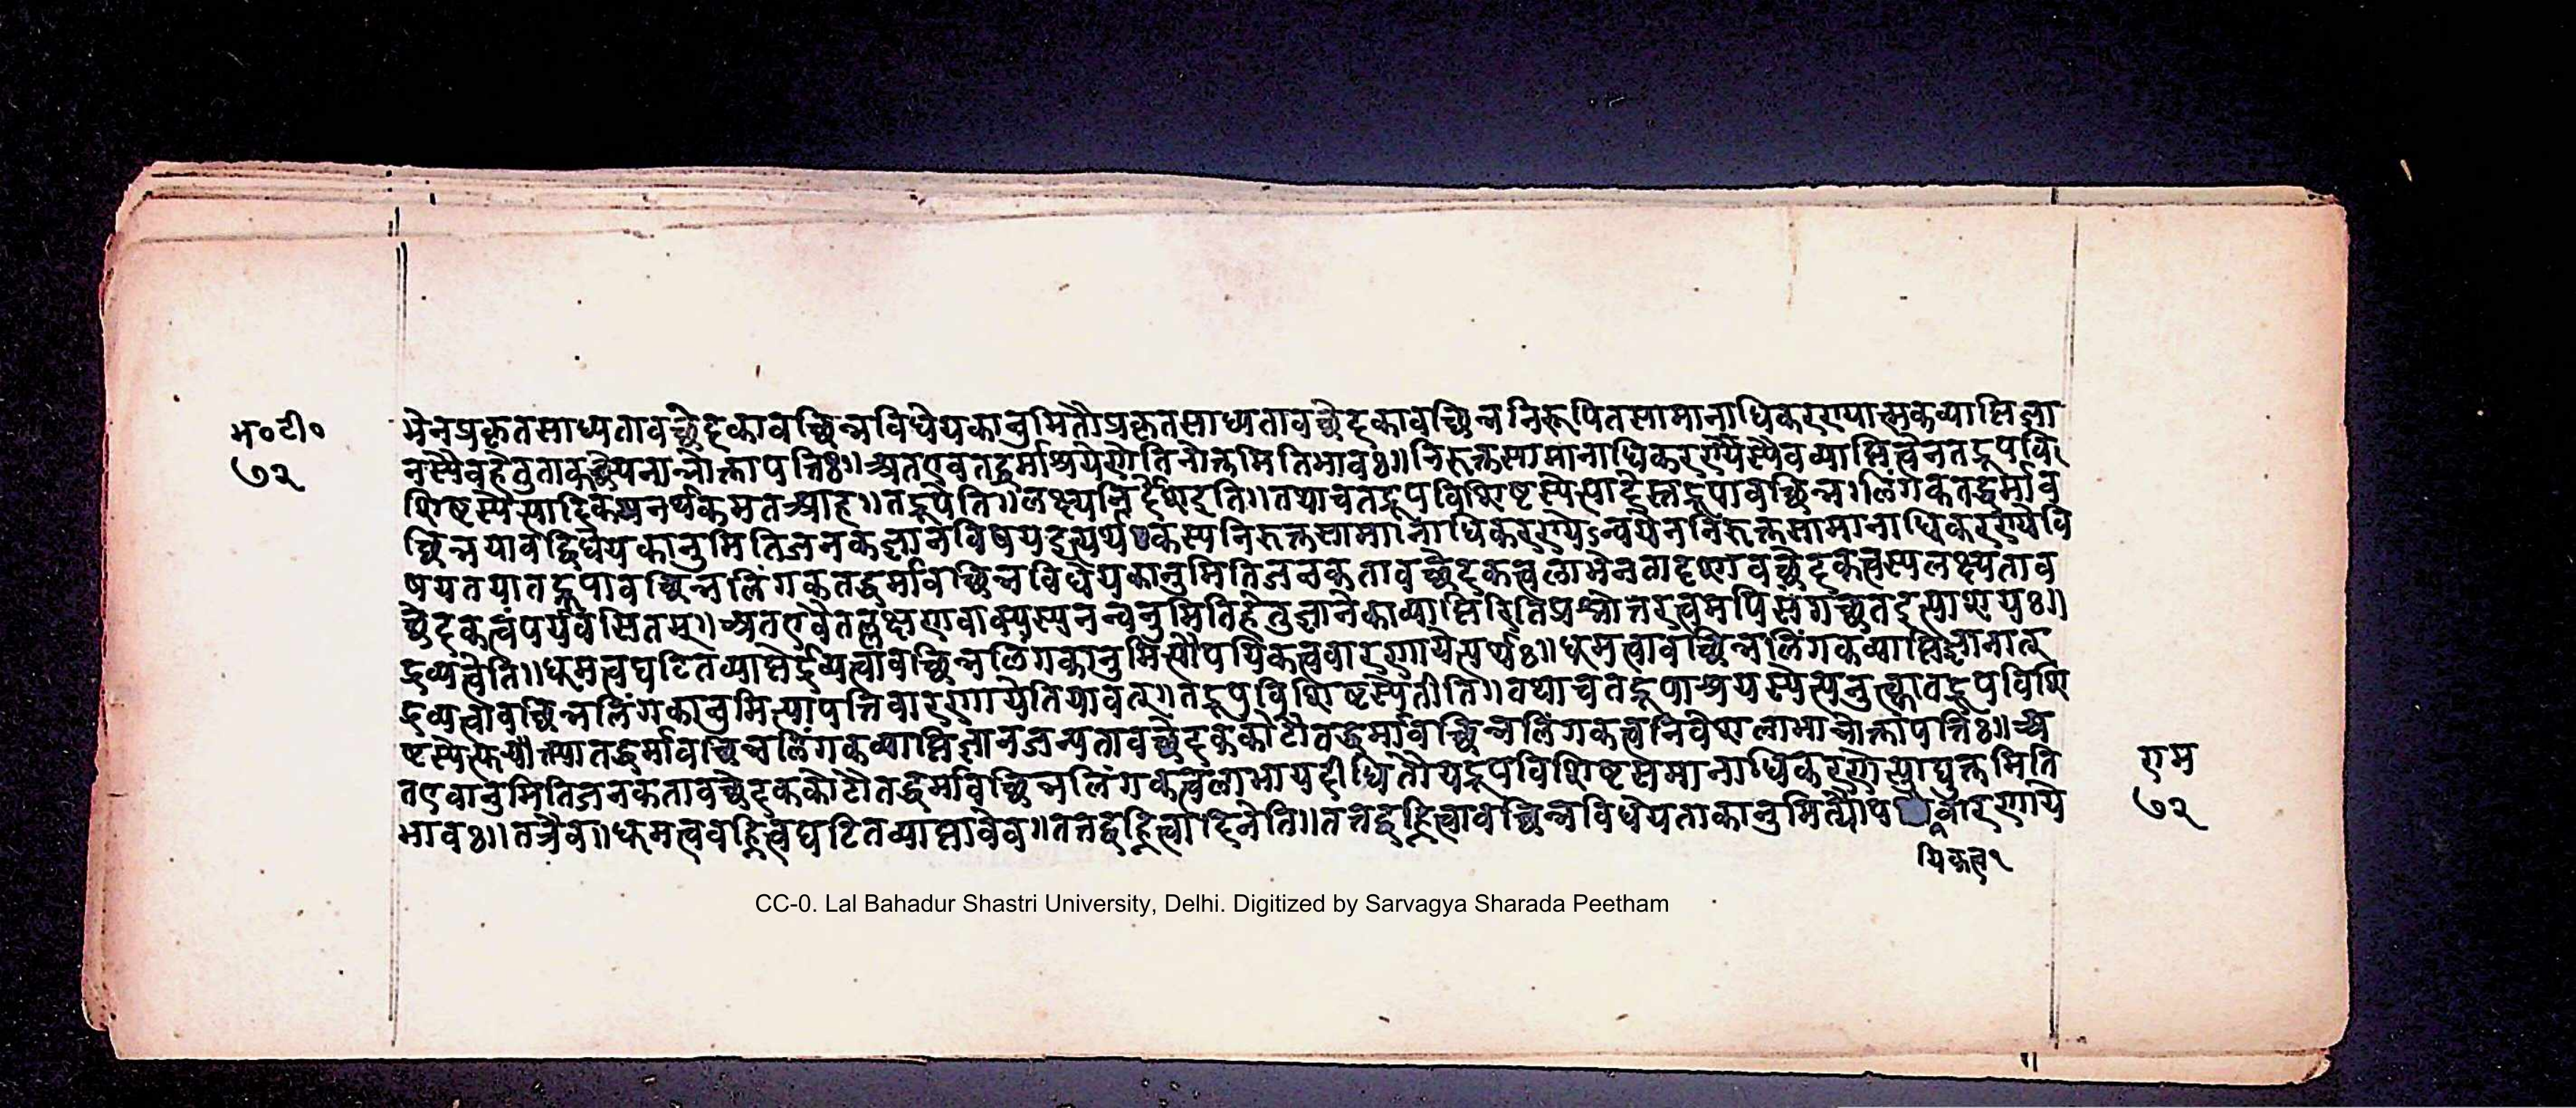 म॰टी॰
७२
भेनप्रकृतसाध्यतावच्छेदकावच्छिन्नविधेयकानुमितौप्रकृतसाध्यतावच्छेदकावच्छिन्ननिरूपितसामानाधिकरण्यात्मकव्याप्तिज्ञा
नस्यैवहेतुताकल्पेपनान्नोक्तापत्तिः॥अतएवतद्धर्माश्रयेणेतिनोक्तमितिभावः॥निरुक्तसामानाधिकरण्यस्यैवव्याप्तित्वेनतद्रूपवि
शिष्टस्येत्यादिकमनर्थकमतआह॥तद्रूपेति॥लक्ष्यनिर्देशइति॥तथाचतद्रूपविशिष्टस्येत्यादेस्तद्रूपावच्छिन्नलिंगकतद्धर्माव
च्छिन्नयावद्विधेयकानुमितिजनकज्ञानविषयइत्यर्थकस्यनिरुक्तसामानाधिकरण्येऽन्वयेननिरुक्तसामानाधिकरण्येवि
षयतयातद्रूपावच्छिन्नलिंगकतद्धर्मावच्छिन्नविधेयकानुमितिजनकतावच्छेदकत्वलाभेनतादृशावच्छेदकत्वस्यलक्ष्यताव
च्छेदकत्वंपर्यवसितम्॥अतएवैतल्लक्षणवाक्यस्यनन्वनुमितिहेतुज्ञानेकाव्याप्तिरितिप्रश्नोत्तरत्वमपिसंगच्छतइत्याशयः॥
द्रव्यत्वेति॥धूमत्वघटितव्याप्तेर्द्रव्यत्वावच्छिन्नलिंगकानुमित्यौपयिकत्ववारणायेत्यर्थः॥धूमत्वावच्छिन्नलिंगकव्याप्तिज्ञानात्
द्रव्यत्वावच्छिन्नलिंगकानुमित्यापत्तिवारणायेतियावत्॥तद्रूपविशिष्टस्येतीति॥तथाचतद्रूपाश्रयस्येत्यनुत्क्वातद्रूपविशि
ष्टस्येत्यतद्धर्मावच्छिन्नलिंगकव्याप्तिज्ञानजन्यतावच्छेदककोटौतद्धर्मावच्छिन्नलिंगकत्वनिवेशलाभान्नोक्तापत्तिः॥अ
तएवानुमितिजनकतावच्छेदककोटौतद्धर्मावच्छिन्नलिंगकत्वलाभायदीधितौयद्रूपविशिष्टसमानाधिकरणेत्याद्युक्तमिति
भावः॥तत्रैव॥धूमत्ववह्नित्वघटितव्याप्तावेव॥तत्तद्वह्नित्वादिनेति॥तत्तद्वह्नित्वावच्छिन्नविधेयताकानुमित्यौपवारणाये
यिकत्व१
एम
७२
CC-0. Lal Bahadur Shastri University, Delhi. Digitized by Sarvagya Sharada Peetham